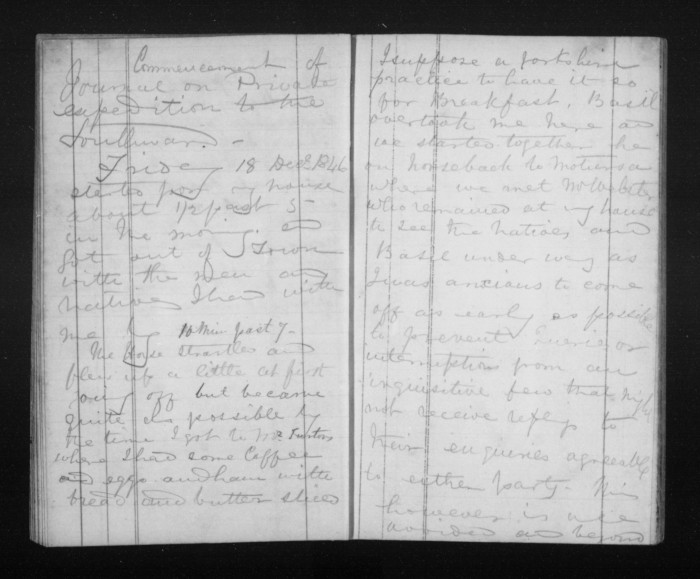 Commencement of
Journal on Private
expedition to the
Southward. -
Friday 18 Decr 1846
started from my house
about 1/2 past 5 -
in the morning and
got out of Town
with the men and
natives I had with
me by 10 Min past 7 -
The horse startles and
plew up a little at first
going off but became
quite as possible by
the time I got to Mr
where I had some Coffee
and eggs and ham with
bread and butter sliced
I suppose a Yorkshire
practice to have it so
for Breakfast. Basil
overtook me here and
we started together he
on horseback to
where we met Mr Webster
who remained at my house
to see the natives and
Basil under way as
I was anxious to come
off as early as possible
to prevent queries or
interruptions from an
inquisitive few that might
not receive replys to
their enquiries agreeable
to either party. This
however is now
avoided and beyond